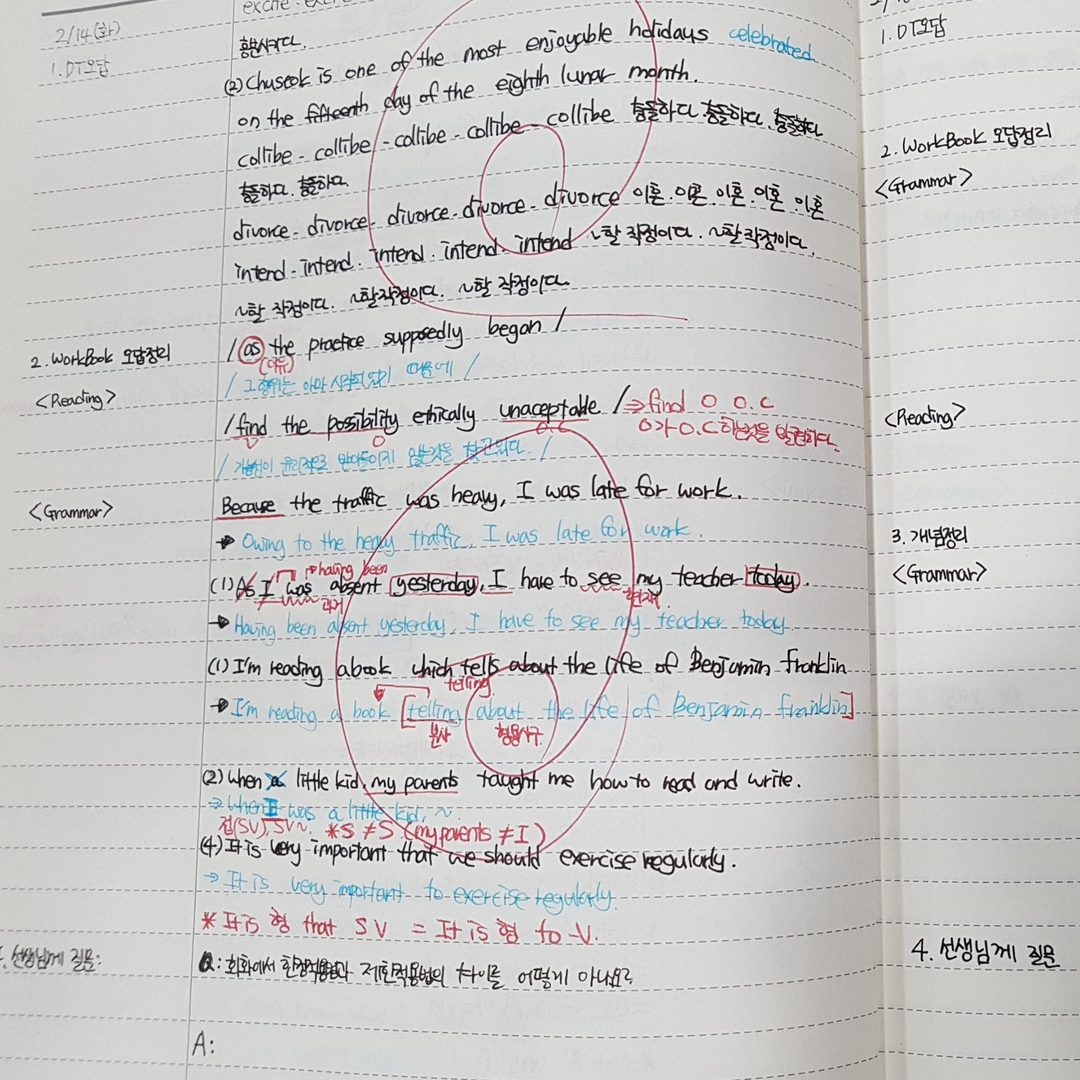 excite
2/14(화)
1. DT오답
흥분시키다.
(2) Chuseok is one of the most enjoyable holidays celebrated
on the fifteenth day of the eighth lunar month.
collibe - collibe - collibe - collibe - collibe 충돌하다. 충돌하다. 충돌하다
충돌하다. 충돌하다.
divorce - divorce - divorce - divorce - divorce 이혼. 이혼. 이혼. 이혼. 이혼
intend - intend. intend. intend. intend ~할 작정이다. ~할 작정이다.
~할 작정이다. ~할 작정이다. ~할 작정이다.
2. WorkBook 오답정리
/ as the practice supposedly began /
<Reading>
/ 그 행위는 아마 시작되었기 때문에 /
/ find the possibility ethically unaceptable / ⇒ find O O.C
V O O.C
O가 O.C 한것을 발견하다.
/ 가능성이 윤리적으로 받아들이지 않는것을 발견된다. /
<Grammar>
Because the traffic was heavy, I was late for work.
→ Owing to the heavy traffic, I was late for work.
having been
(1) As I was absent yesterday, I have to see my teacher today.
과거 현재
→ Having been absent yesterday, I have to see my teacher today
(1) I'm reading a book which tells about the life of Benjamin Franklin
telling
→ I'm reading a book [telling about the life of Benjamin Franklin]
분사 형용사구
(2) When a little kid, my parents taught me how to read and write.
→ When I was a little kid, ~.
접(SV), SV~. *S ≠ S (my parents ≠ I)
(4) It is very important that we should exercise regularly.
→ It is very important to exercise regularly.
* It is 형 that S V = It is 형 to -V.
선생님께 질문:
Q: 회화에서 한정적용법과 제한적용법의 차이를 어떻게 아나요?
A:
1. DT오답
2. WorkBook 오답정리
<Grammar>
<Reading>
3. 개념정리
<Grammar>
4. 선생님께 질문